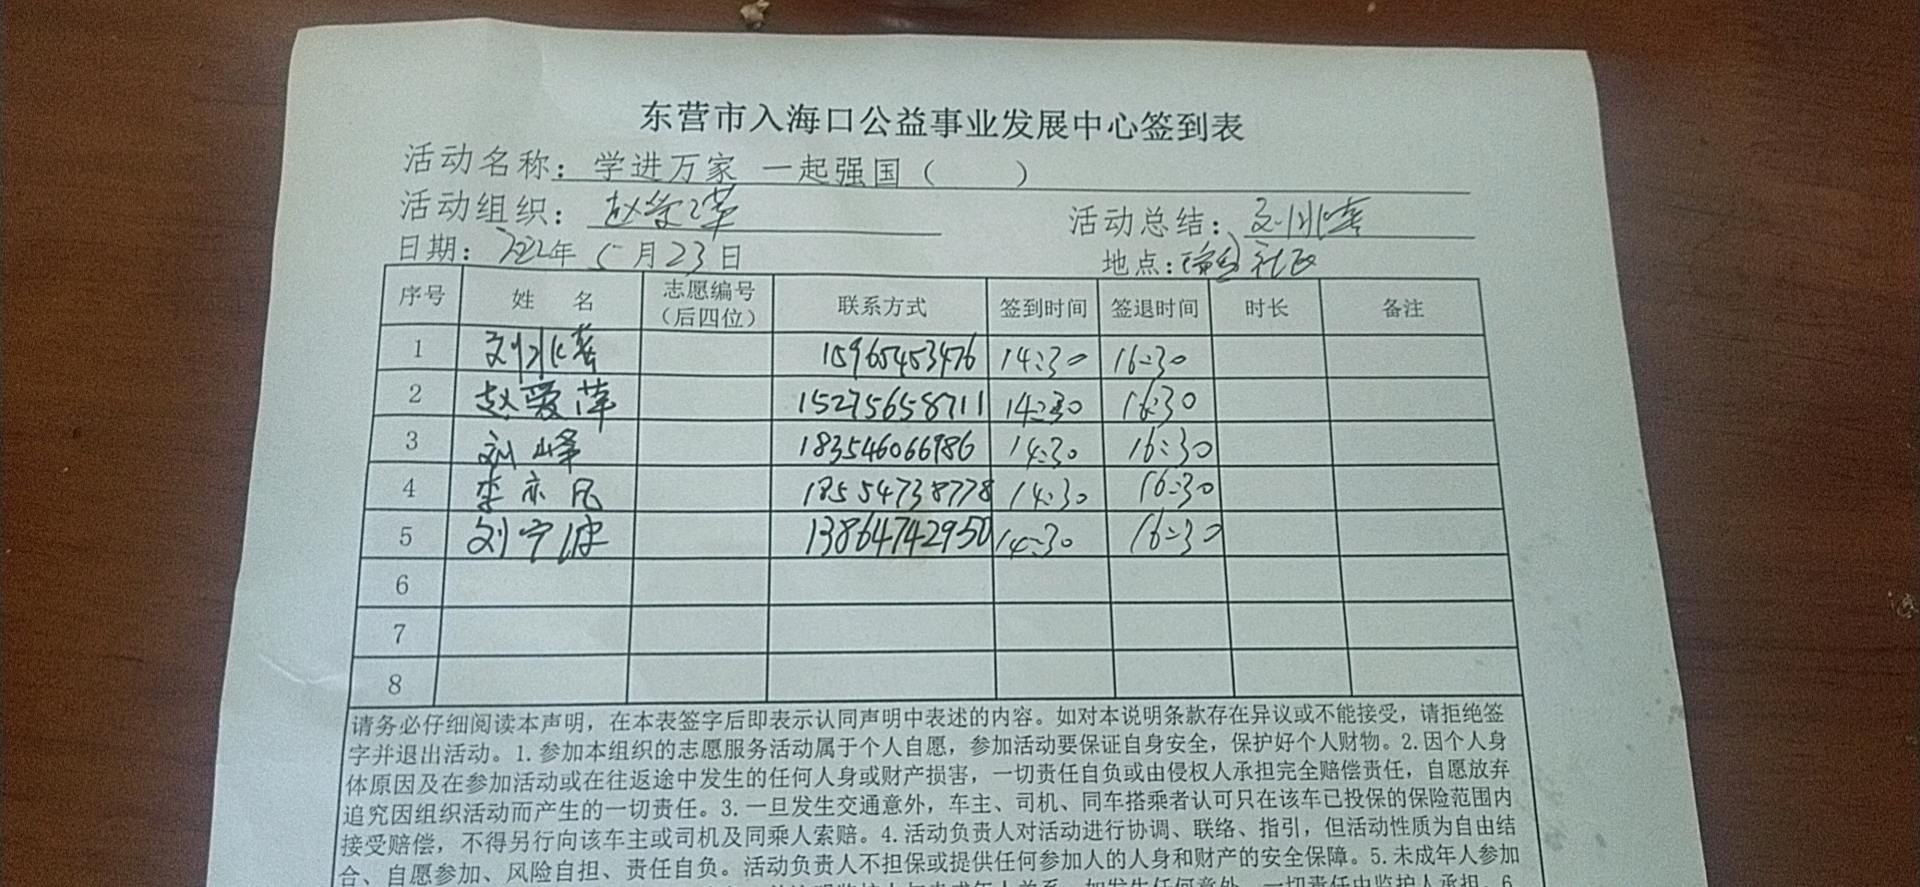 东营市入海口公益事业发展中心签到表
活动名称：学进万家 一起强国（ ）
活动组织：赵爱萍 活动总结：刘冰莲
日期：2022年5月23日 地点：社区
序号 姓名 志愿编号（后四位） 联系方式 签到时间 签退时间 时长 备注
1 刘冰 15965453476 14:30 16:30
2 赵爱萍 15275658711 14:30 16:30
3 刘峰 18354606698 14:30 16:30
4 李亦凡 18554738778 14:30 16:30
5 刘宁波 13864742950 14:30 16:30
6
7
8
请务必仔细阅读本声明，在本表签字后即表示认同声明中表述的内容。如对本说明条款存在异议或不能接受，请拒绝签
字并退出活动。1.参加本组织的志愿服务活动属于个人自愿，参加活动要保证自身安全，保护好个人财物。2.因个人身
体原因及在参加活动或在往返途中发生的任何人身或财产损害，一切责任自负或由侵权人承担完全赔偿责任，自愿放弃
追究因组织活动而产生的一切责任。3.一旦发生交通意外，车主、司机、同车搭乘者认可只在该车已投保的保险范围内
接受赔偿，不得另行向该车主或司机及同乘人索赔。4.活动负责人对活动进行协调、联络、指引，但活动性质为自由结
合、自愿参加、风险自担、责任自负。活动负责人不担保或提供任何参加人的人身和财产的安全保障。5.未成年人参加